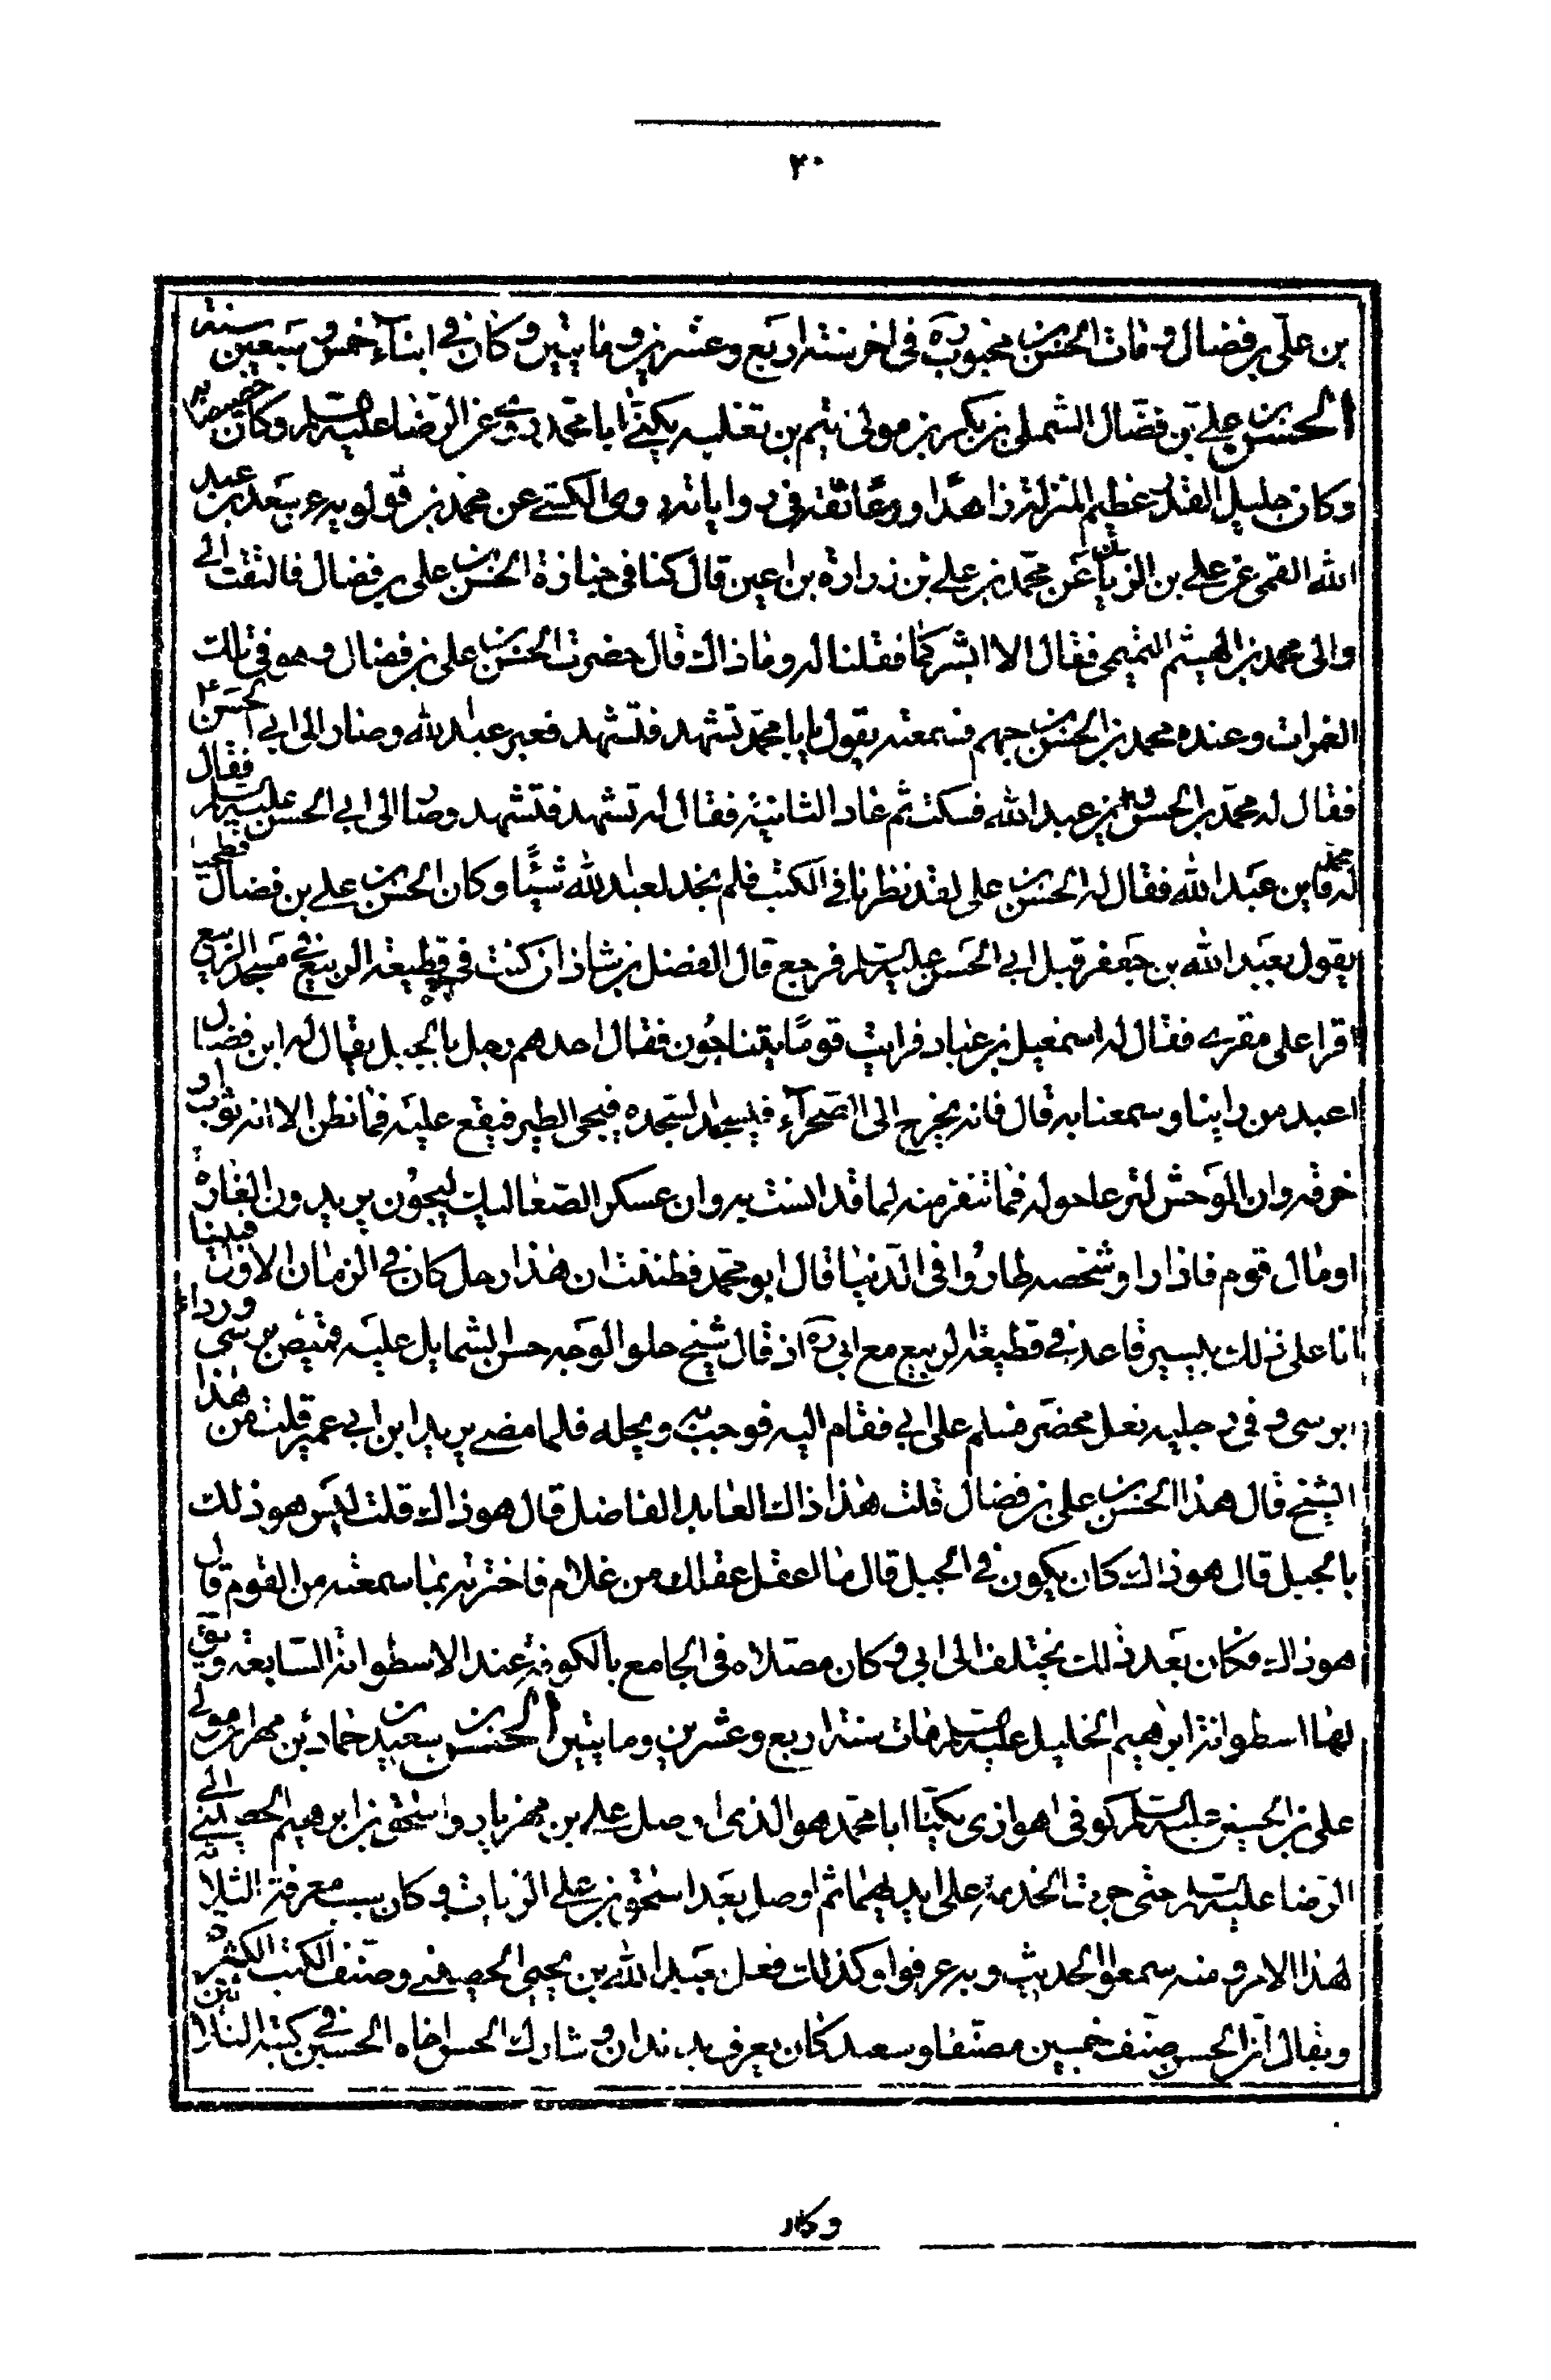 ٢٠
بن على بن فضال ومات الحسن بن محبوب ره فى اخر سنة اربع وعشرين وماتين وكان فى ابناء خمس وسبعين سنة
الحسن بن على بن فضال التيملى بن بكر بن مولى تيم بن ثعلبه يكنى ابا محمد روى عن الرضا عليه السلم وكان خصيصا به
وكان جليل القدر عظيم المنزلة زاهدا ورعا ثقة فى رواياته روى الكشى عن محمد بن قولويه عن سعد بن عبد
الله القمى عن على بن الريان عن محمد بن على بن زرارة بن اعين قال كنا فى جنازة الحسن بن على بن فضال فالتفت الى
والى محمد بن الهيثم التميمى فقال الا ابشركما فقلنا له وما ذاك قال حضرت الحسن بن على بن فضال وهو فى تلك
الغمرات وعنده محمد بن الحسن بن جهم فسمعته يقول يابا محمد تشهد فتشهد فعبر عبد الله وصار الى ابى الحسن ع
فقال له محمد بن الحسن فاين عبد الله فسكت ثم عاد الثانية فقال له تشهد فتشهد وصار الى ابى الحسن عليه السلم فقال
له محمد فاين عبد الله فقال له الحسن بن على لقد نظرنا فى الكتب فلم نجد لعبد الله شيئا وكان الحسن بن على بن فضال فطحيا
يقول بعبد الله بن جعفر قبل ابى الحسن عليه السلم فرجع قال الفضل بن شاذان كنت فى قطيعة الربيع فى مسجد الربيع
اقرا على مقرى فقال له اسمعيل بن عباد فرايت قوما يتناجون فقال احدهم رجل بالجبل يقال له ابن فضال
اعبد من راينا وسمعنا به قال فانه يخرج الى الصحراء فيسجد السجده فيجى الطير فيقع عليه فما نظن الا انه ثوب او
خرقه وان الوحش لترعا حوله فما تنفر منه لما قد انست به وان عسكر الصعاليك ليجون يريدون الغارة
او مال قوم فاذا راو شخصه طاروا فى الدنيا قال ابو محمد فظننت ان هذا رجل كان فى الزمان الاول فبينا
انا على ذلك بيسير قاعد فى قطيعة الربيع مع ابى ره اذ قال شيخ حلو الوجه حسن الشمايل عليه قميص نرسى ورداء
نرسى وفى رجليه نعل مخصر فسلم على ابى فقام اليه فرحب به وبجله فلما مضى يريد ابن ابى عمير قلت من هذا
الشيخ قال هذا الحسن بن على بن فضال قلت هذا ذاك العابد الفاضل قال هو ذاك قلت ليس هو ذلك
بالجبل قال هو ذاك كان يكون فى الجبل قال ما العقل عقلك من غلام فاخبرته بما سمعته من القوم قال
هو ذاك فكان بعد ذلك يختلف الى ابى وكان مصلاه فى الجامع بالكوفة عند الاسطوانة السابعة ويقال
لها اسطوانة ابرهيم الخليل عليه السلم مات سنة اربع وعشرين وماتين الحسن بن سعيد بن حماد بن مهران مولى
على بن الحسين عليه السلم كوفى اهوازى يكنا ابا محمد هو الذى اوصل على بن مهزيار واسحق بن ابرهيم الحصينى الى
الرضا عليه السلم حتى جرت الخدمة على ايديهما ثم اوصل بعد اسحق بن على الريان وكان سبب معرفة الثلاثه
لهذا الامر ومنه سمعوا الحديث وبه عرفوا وكذلك فعل بعبد الله بن يحيى الحصينى وصنف الكتب الكثيره
ويقال ان الحسن صنف خمسين مصنفا وسعيد كان يعرف بدندان وشارك الحسن اخاه الحسين فى كتبه الثلاثين
وكان